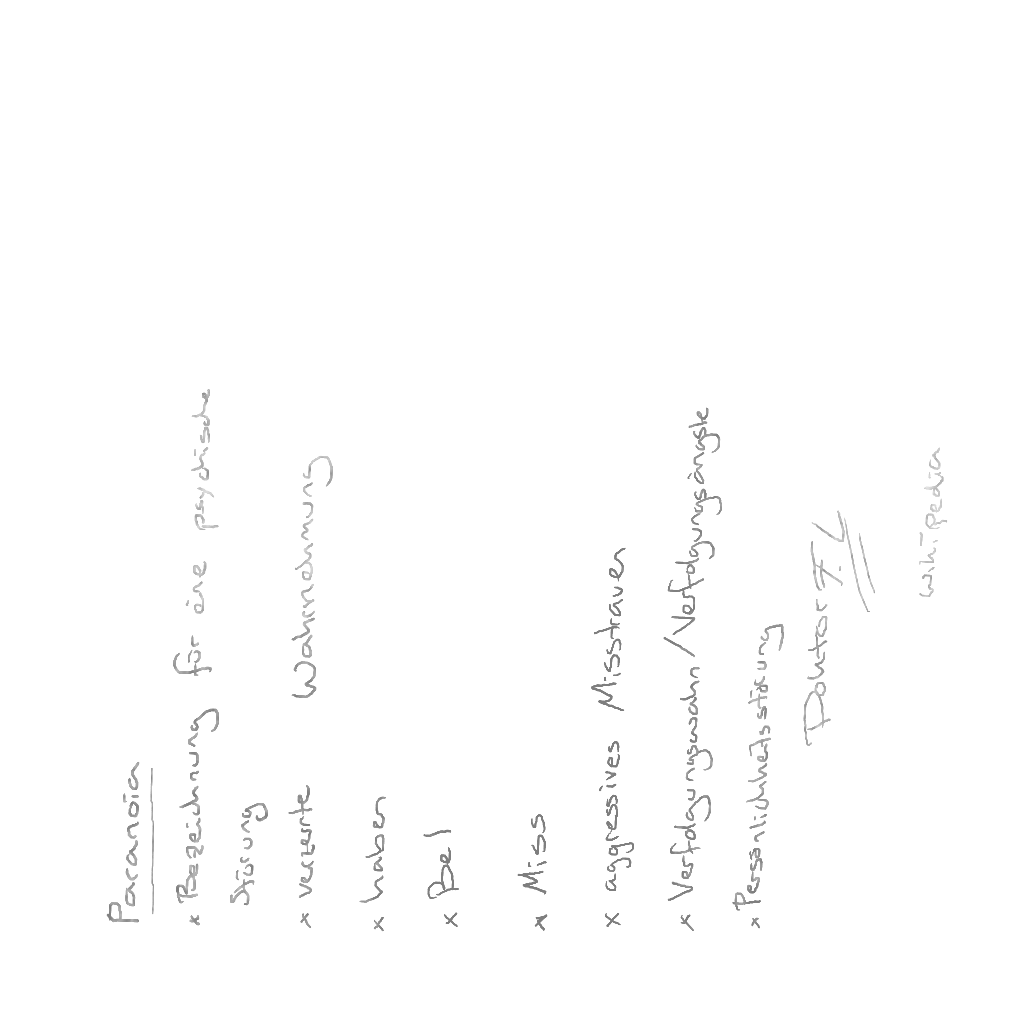 Paranoia
x Bezeichnung für eine psychische
Störung
x verzerrte Wahrnehmung
x haben
x Bel
x Miss
x aggressives Misstrauen
x Verfolgungswahn/Verfolgungsängste
x Persönlichkeitsstörung
Doktor
Wikipedia